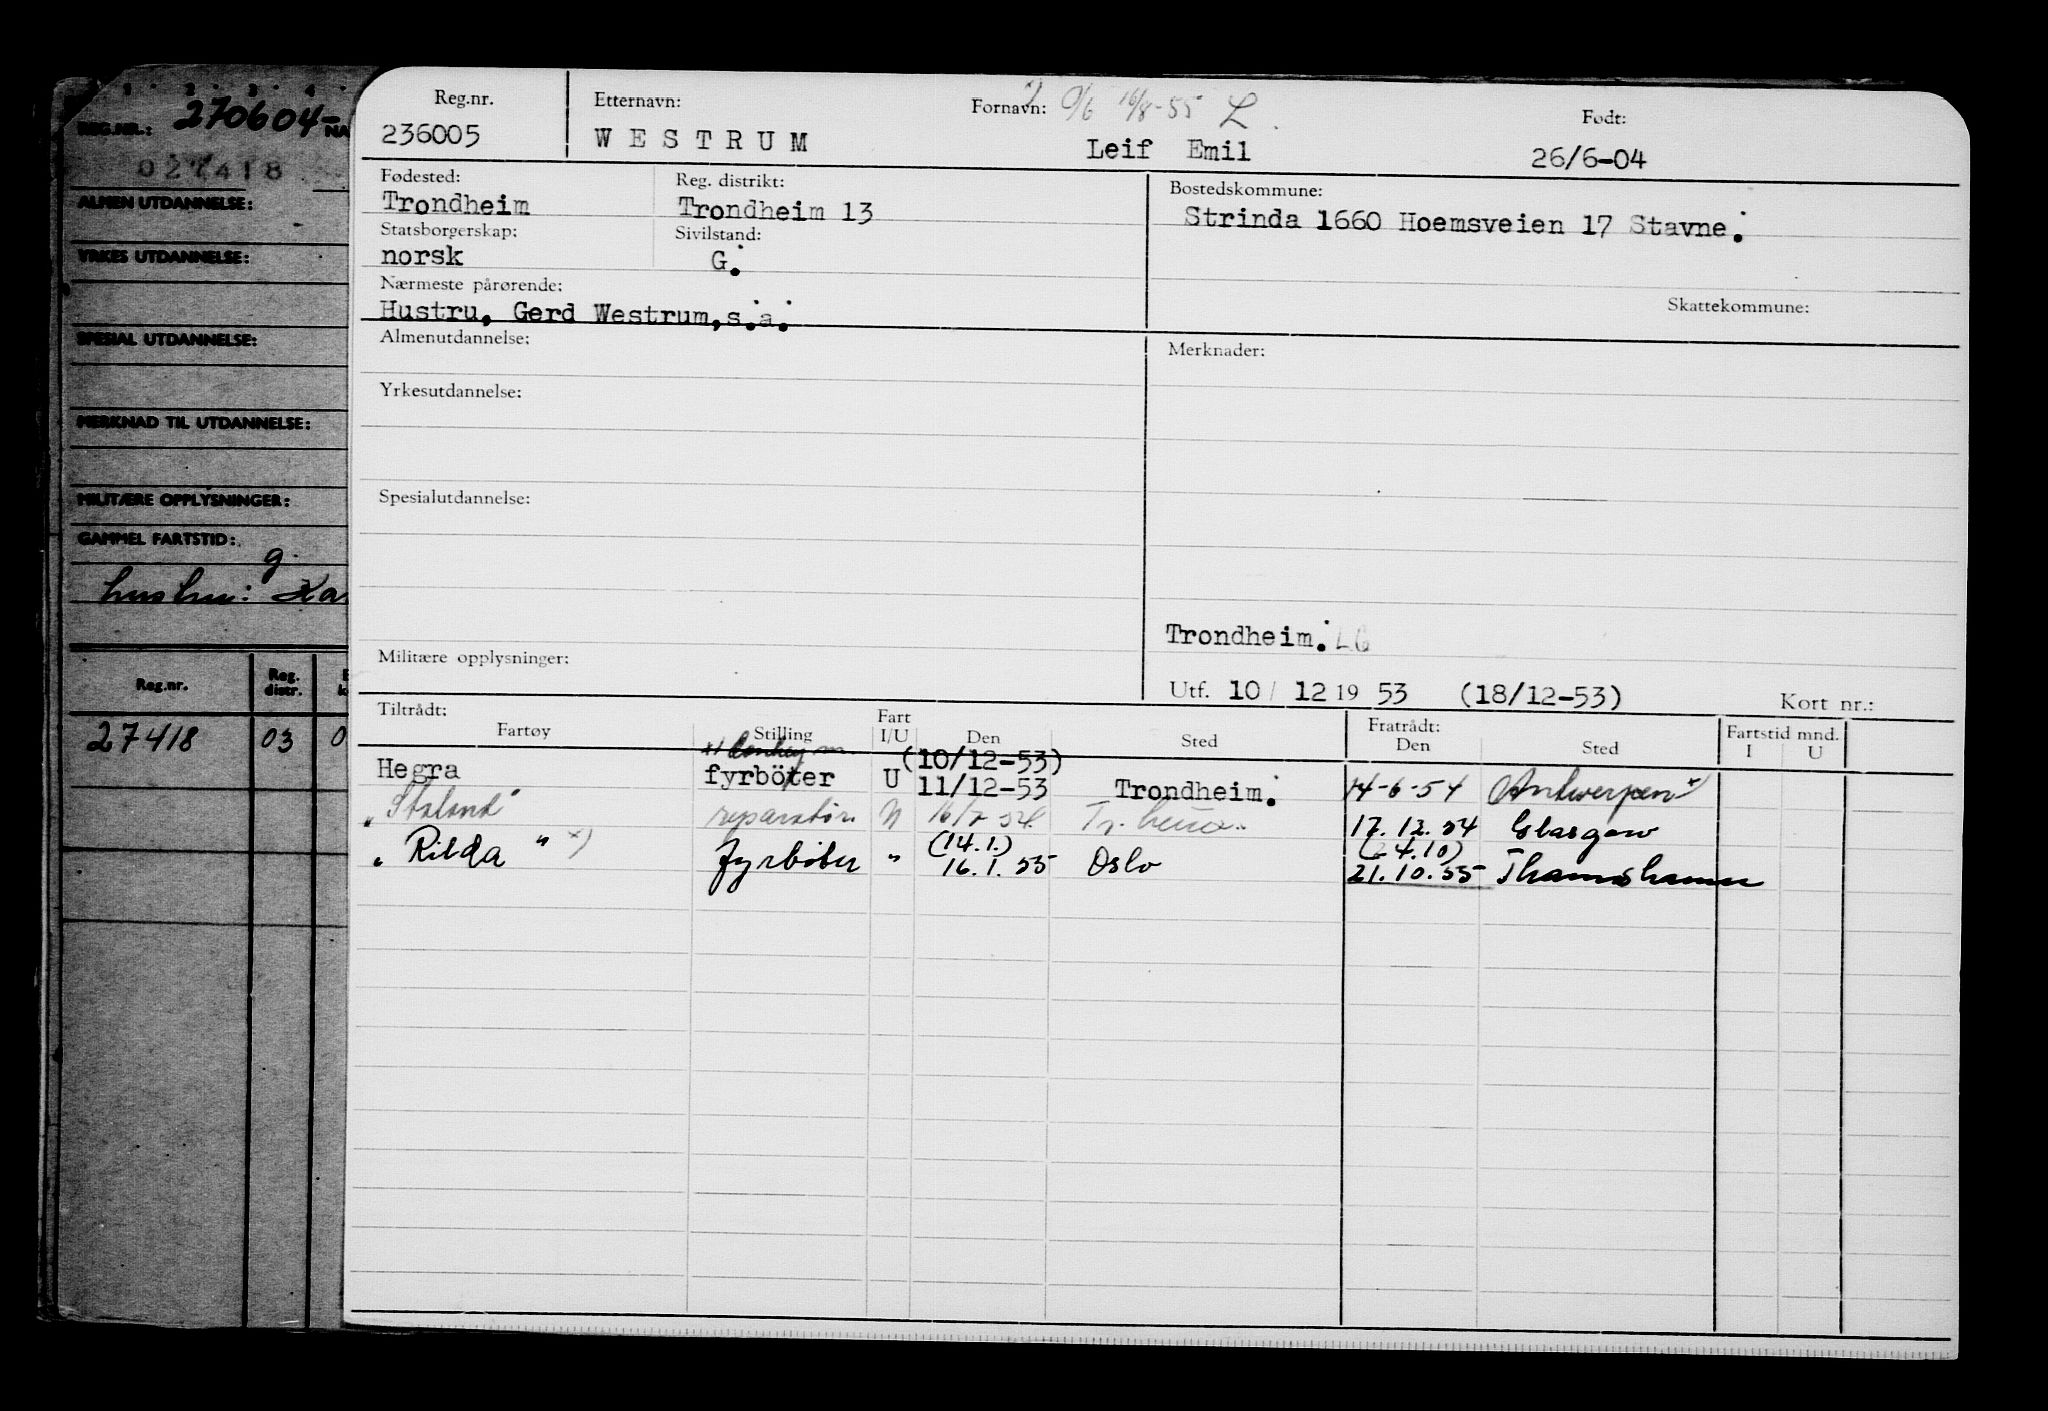 1 2 3 4
REG.NR.: 270604- NA
027418
ALMEN UTDANNELSE:
YRKES UTDANNELSE:
SPESIAL UTDANNELSE:
MERKNAD TIL UTDANNELSE:
MILITÆRE OPPLYSNINGER:
GAMMEL FARTSTID:
g.
hustru: Ka
Reg.nr. Reg. distr.
27418 03 0
Reg.nr. Etternavn: Fornavn: 16/8-55 L. Født:
236005 WESTRUM Leif Emil 26/6-04
Fødested: Reg. distrikt: Bostedskommune:
Trondheim Trondheim 13 Strinda 1660 Hoemsveien 17 Stavne.
Statsborgerskap: Sivilstand:
norsk G.
Nærmeste pårørende: Skattekommune:
Hustru, Gerd Westrum, s.a.
Almenutdannelse: Merknader:
Yrkesutdannelse:
Spesialutdannelse:
Trondheim. LG
Militære opplysninger:
Utf. 10/ 12 19 53 (18/12-53) Kort nr.:
Tiltrådt: Fart Fratrådt: Fartstid mnd.
Fartøy Stilling I/U Den Sted Den Sted I U
x) m. (10/12-53)
Hegra fyrbøter U 11/12-53 Trondheim. 14-6-54 Antwerpen x)
" " reparatør U 16/7 54 17.12.54 Glasgow
(14.1.) (24.10)
" Rilda " x) fyrbøter " 16.1.55 Oslo 21.10.55 Thamshamn